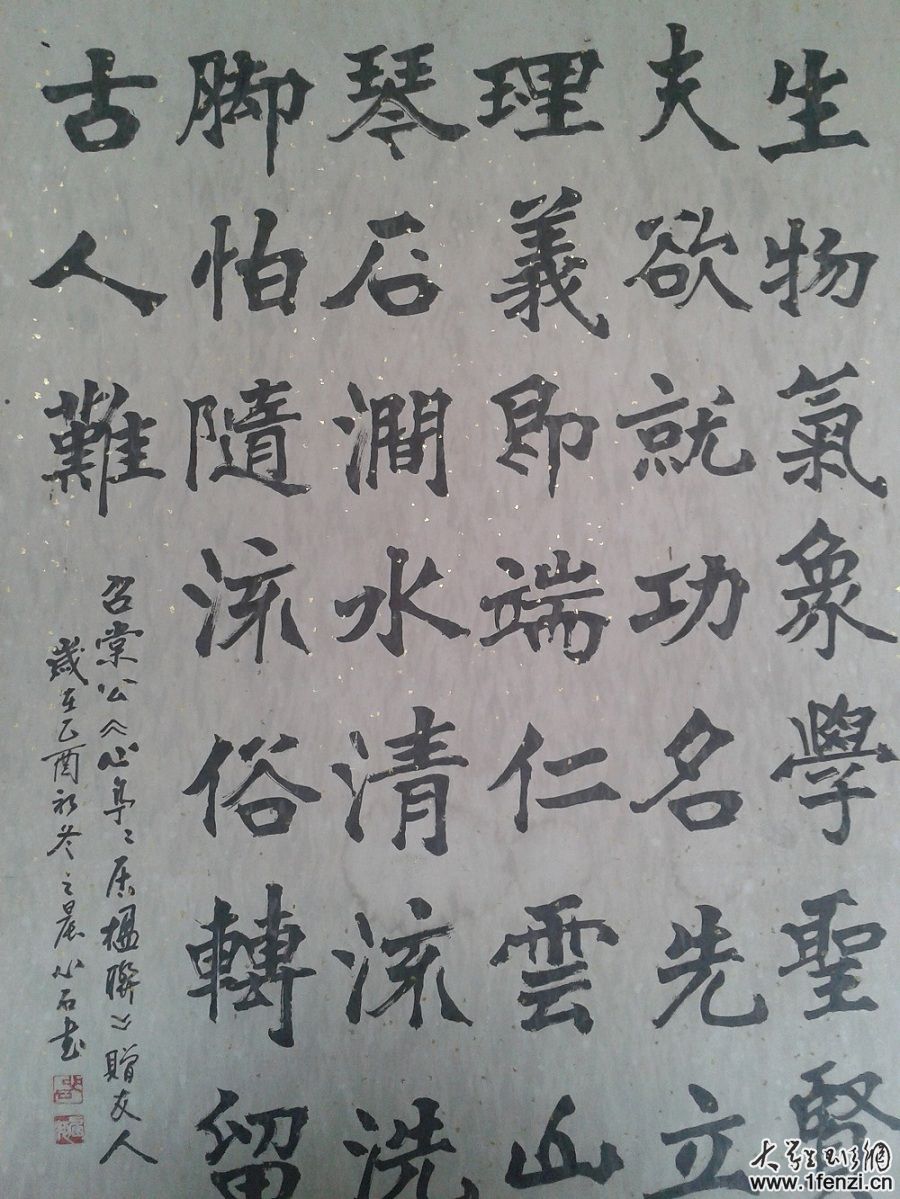 生物氣象學聖賢
夫欲就功名先立
理義即端仁雲山
琴石澗水清流洗
脚怕隨流俗轉留
古人難
召棠公《心亭亭居楹聯》贈友人
歲在乙酉初冬之晨小石书
大学生书法网
www.1fenzi.cn